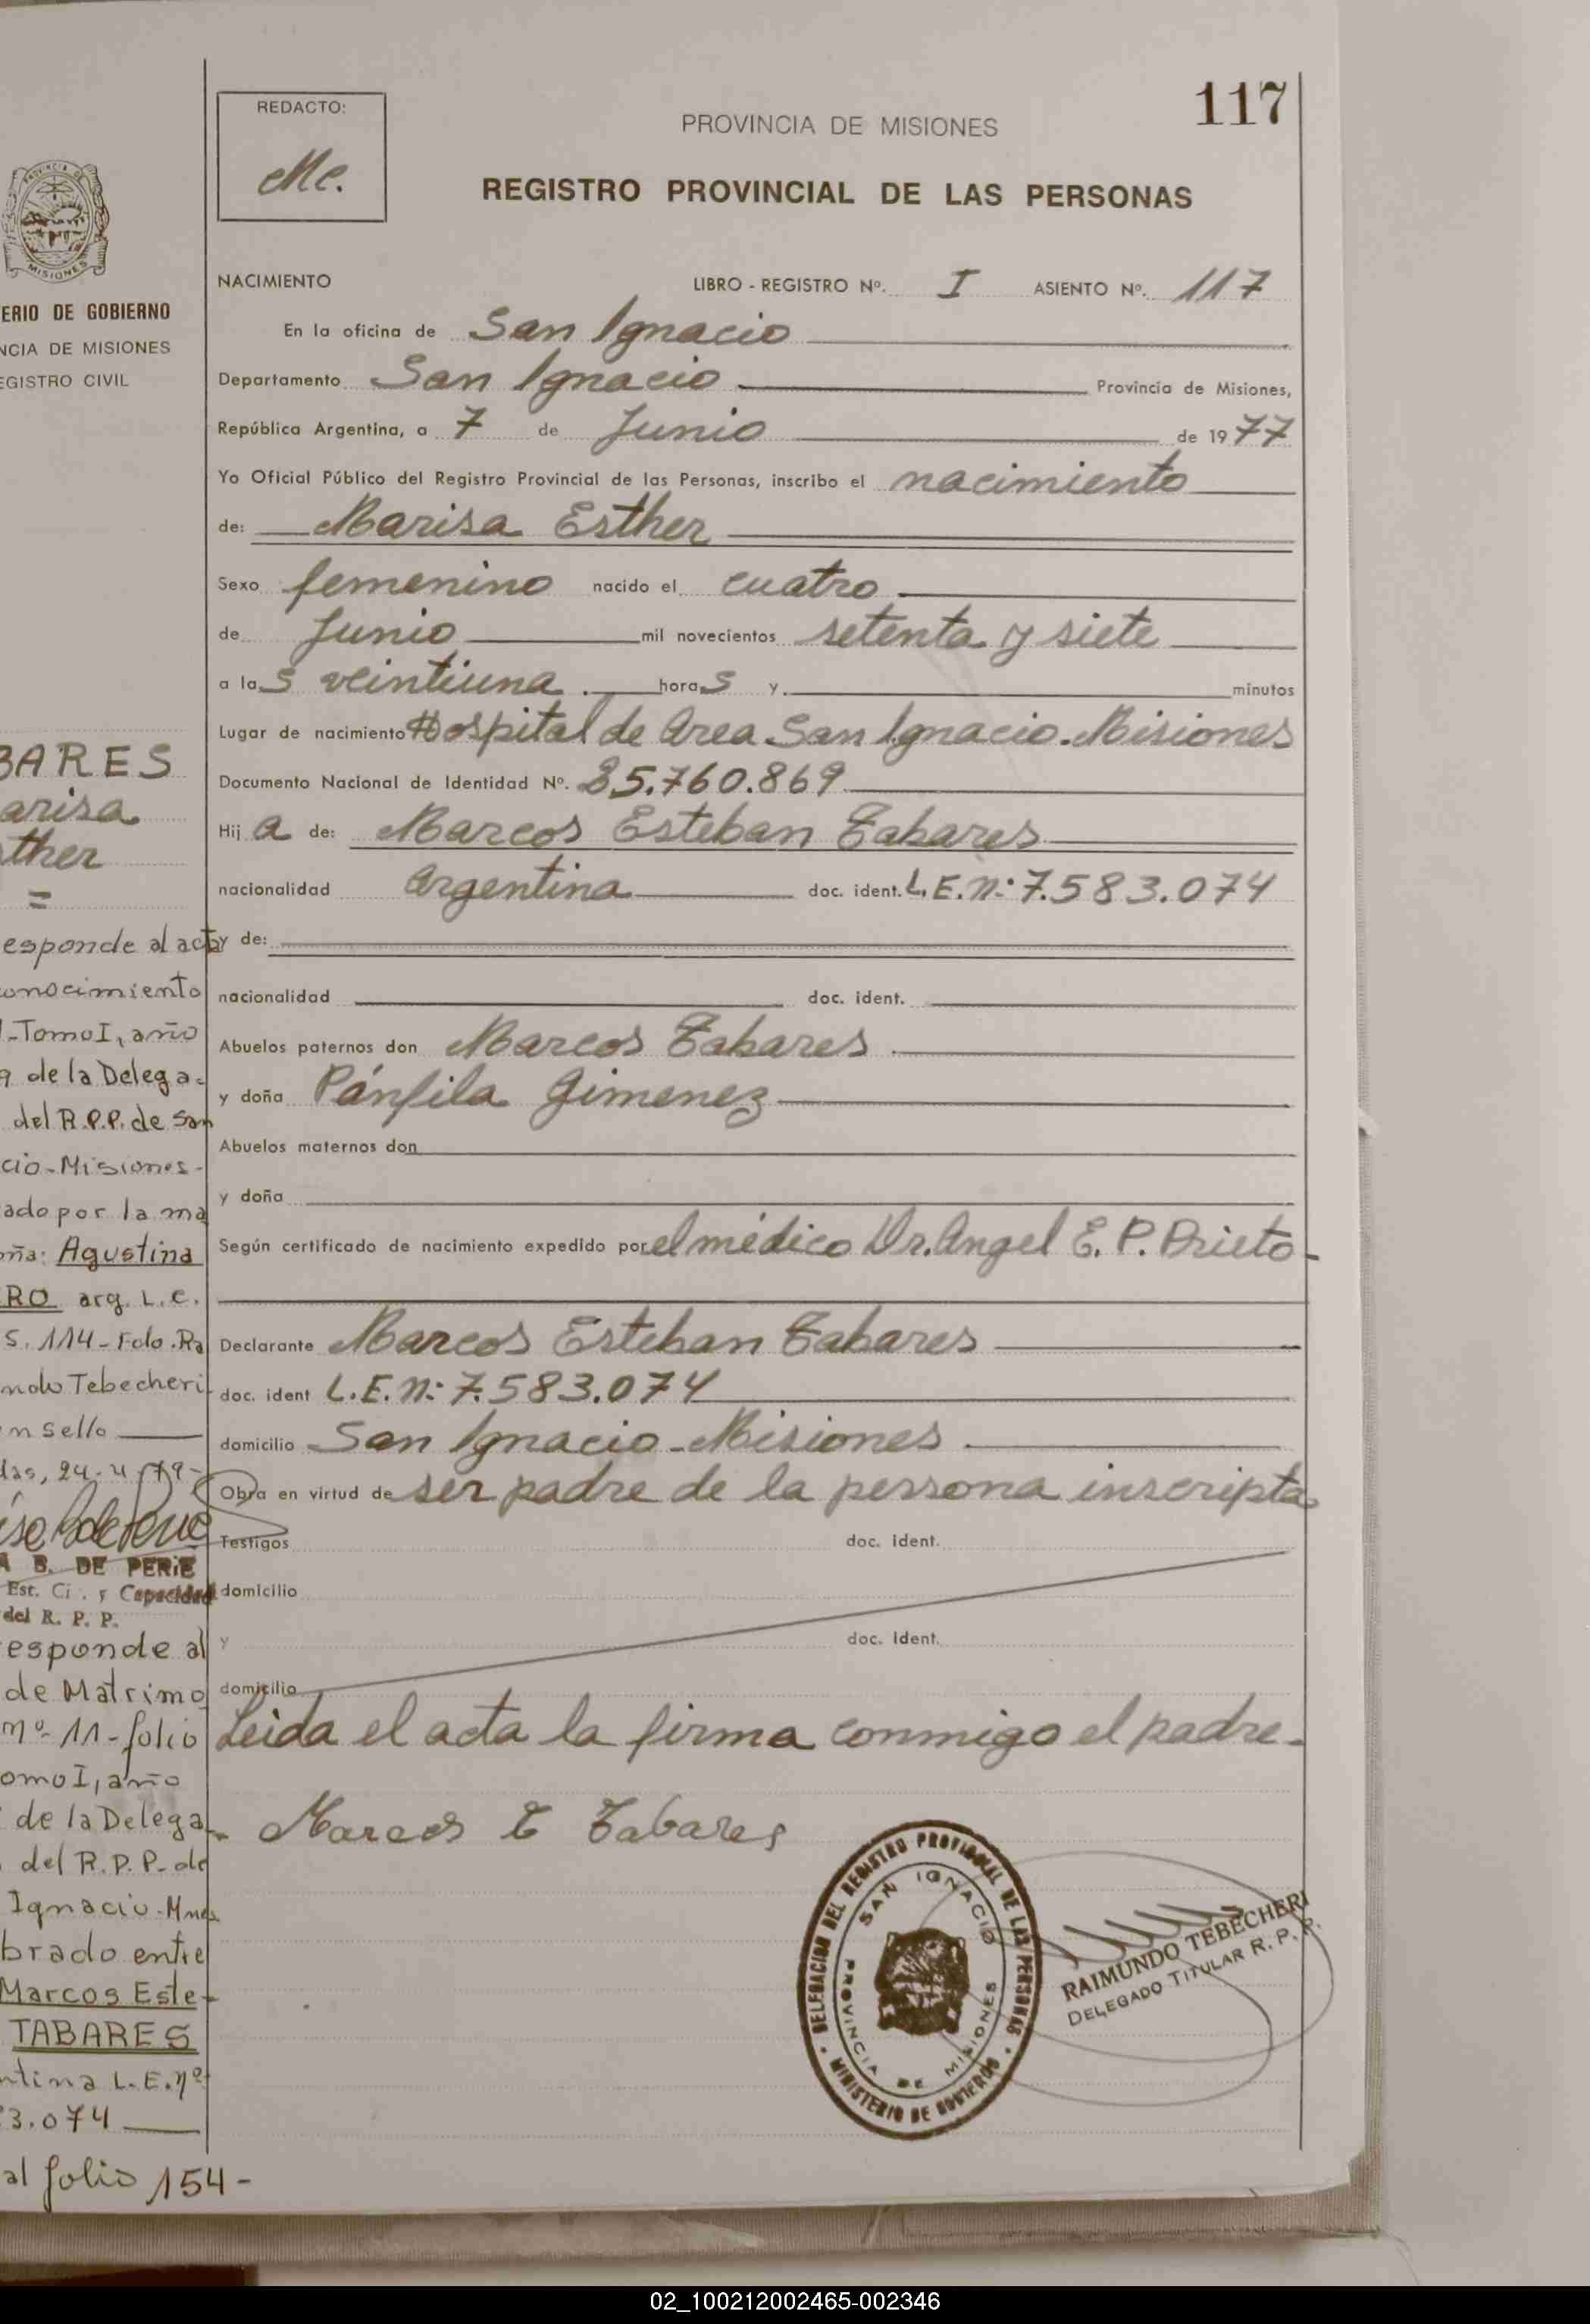 117
REDACTO:
Mc.
PROVINCIA DE MISIONES
REGISTRO PROVINCIAL DE LAS PERSONAS
NACIMIENTO LIBRO - REGISTRO Nº. I ASIENTO Nº. 117
En la oficina de San Ignacio
Departamento San Ignacio Provincia de Misiones,
República Argentina, a 7 de Junio de 1977
Yo Oficial Público del Registro Provincial de las Personas, inscribo el nacimiento
de: Marisa Esther
Sexo femenino nacido el cuatro
de Junio mil novecientos setenta y siete
a las veintiuna horas y minutos
Lugar de nacimiento Hospital de Area San Ignacio. Misiones
Documento Nacional de Identidad Nº. 25.760.869
Hija de: Marcos Esteban Tabares
nacionalidad Argentina doc. ident. L.E.n: 7.583.074
y de:
nacionalidad doc. ident.
Abuelos paternos don Marcos Tabares
y doña Pánfila Gimenez
Abuelos maternos don
y doña
Según certificado de nacimiento expedido por el médico Dr. Angel E. P. Prieto-
Declarante Marcos Esteban Tabares
doc. ident L.E.n: 7.583.074
domicilio San Ignacio - Misiones
Obra en virtud de ser padre de la persona inscripta
Testigos doc. ident.
domicilio
y doc. ident.
domicilio
Leida el acta la firma conmigo el padre.-
Marcos E Tabares
DELEGACION DEL REGISTRO PROVINCIAL DE LAS PERSONAS
MINISTERIO DE GOBIERNO
SAN IGNACIO
PROVINCIA DE MISIONES
RAIMUNDO TEBECHERI
DELEGADO TITULAR R. P. P.
PROVINCIA DE
MISIONES
ERIO DE GOBIERNO
NCIA DE MISIONES
EGISTRO CIVIL
BARES
arisa
ther
=
esponde al acta
onocimiento
-Tomo I, año
9 de la Delega-
del R.P.P. de San
cio-Misiones-
ado por la ma
oña: Agustina
RO arg. L.E.
5.114-Fdo.Ra
ndo Tebecheri
n sello
das, 24-4-79-
A B. DE PERIE
Est. Ci. y Capacidad
del R. P. P.
esponde al
de Matrimo
nº-11-folio
omo I, año
de la Delega
del R.P.P. de
Ignacio-Mnes
brado entre
Marcos Este-
TABARES
ntina L.E.nº
3.074
al folio 154-
02_100212002465-002346